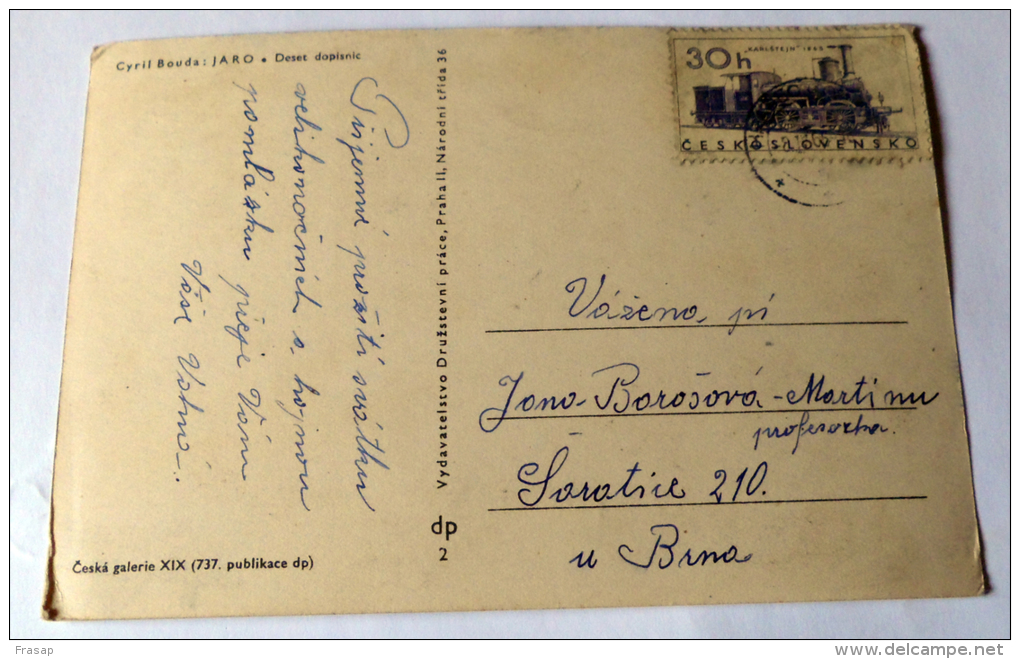 Cyril Bouda: JARO • Deset dopisnic
Příjemné prožití svátků
velikonočních s hojnou
pomlázku přeje Vám
Vaše
Vydavatelstvo Družstevní práce, Praha II, Národní třída 36
dp
2
Česká galerie XIX (737. publikace dp)
30h
"KARLŠTEJN" 1865
ČESKOSLOVENSKO
Vážena pí
Jana Borošová-Martinu
profesorka.
Šaratice 210.
u Brna
Frasap
www.delcampe.net